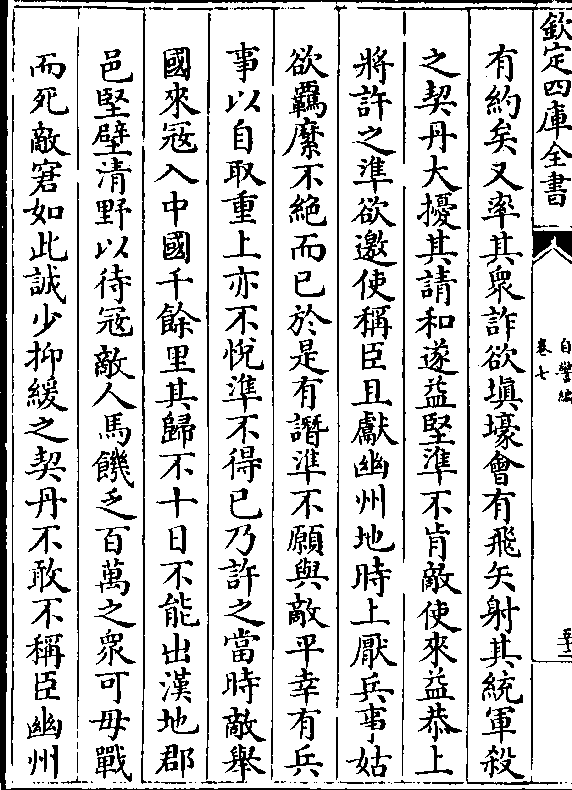 欽定四庫全書
自警編
卷七
有約矣又率其衆詐欲塡壕會有飛矢射其統軍殺
之契丹大擾其請和遂益堅準不肯敵使來益恭上
將許之準欲邀使稱臣且獻幽州地時上厭兵事姑
欲羈縻不絶而已於是有譖準不願與敵平幸有兵
事以自取重上亦不悦準不得已乃許之當時敵舉
國來冦入中國千餘里其歸不十日不能出漢地郡
邑堅壁清野以待冦敵人馬饑乏百萬之衆可毋戰
而死敵窘如此誠少抑緩之契丹不敢不稱臣幽州